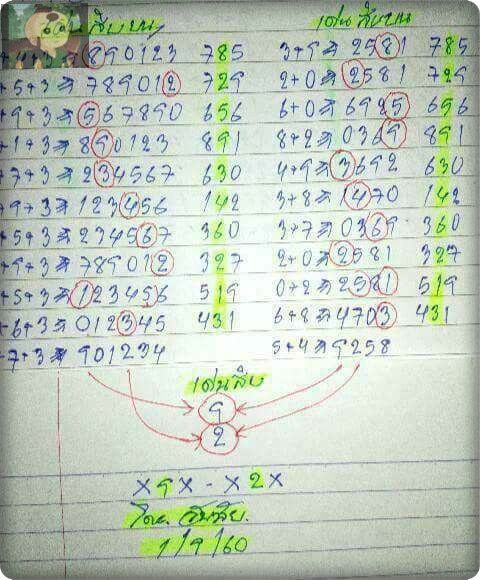 เด่นสิบบน เด่นสิบบน
890123 785 3+9⇒2581 785
+5+3⇒789012 729 2+0⇒2581 729
+9+3⇒567890 656 6+0⇒6925 656
+1+3⇒890123 891 8+2⇒0369 891
+7+3⇒234567 630 4+9⇒3692 630
+9+3⇒123456 142 3+8⇒1470 142
+5+3⇒234567 360 3+7⇒0369 360
+9+3⇒789012 327 2+0⇒2581 327
+5+3⇒123456 519 0+2⇒2581 519
+6+3⇒012345 431 6+8⇒4703 431
+7+3⇒901234 5+4⇒9258
เด่นสิบ
9
2
x9x - x2x
โดย.
1/9/60